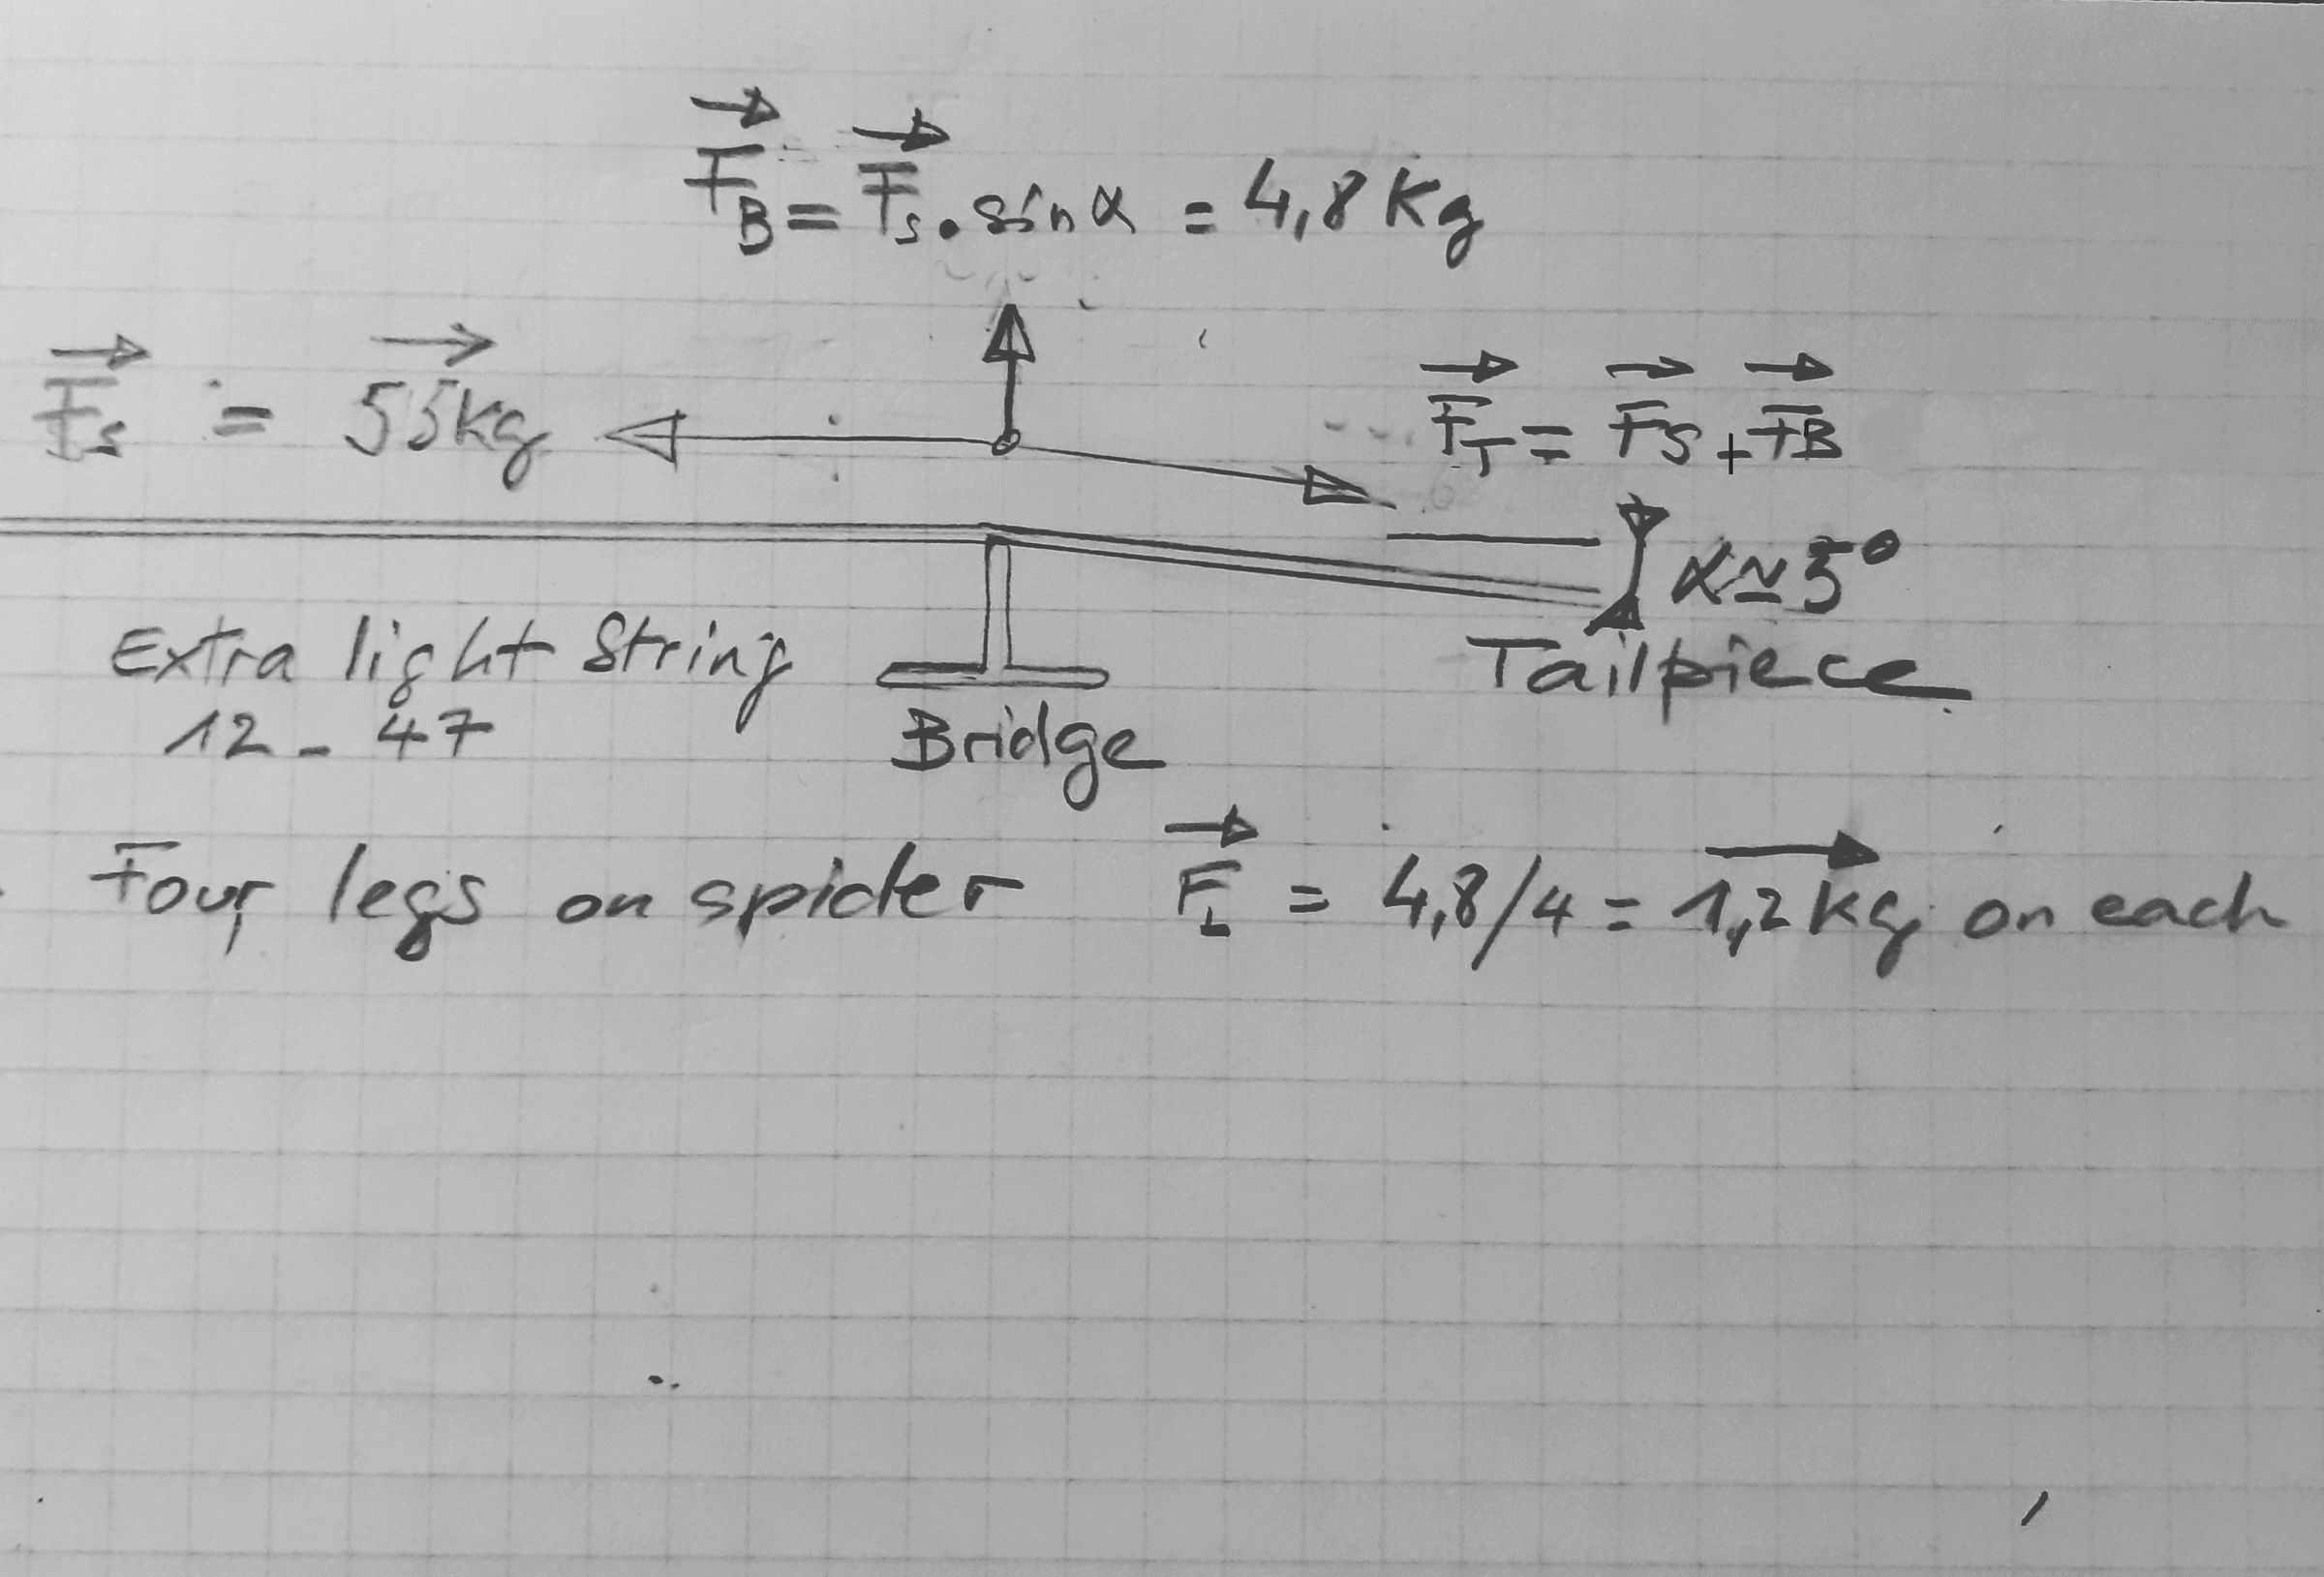 F⃗_B = F⃗_s . sin α = 4,8 Kg
F⃗_s = 55kg
F⃗_T = F⃗_S + F⃗_B
α ≃ 5°
Tailpiece
Extra light String
12 - 47
Bridge
Four legs on spider F⃗_L = 4,8/4 = 1,2 kg on each